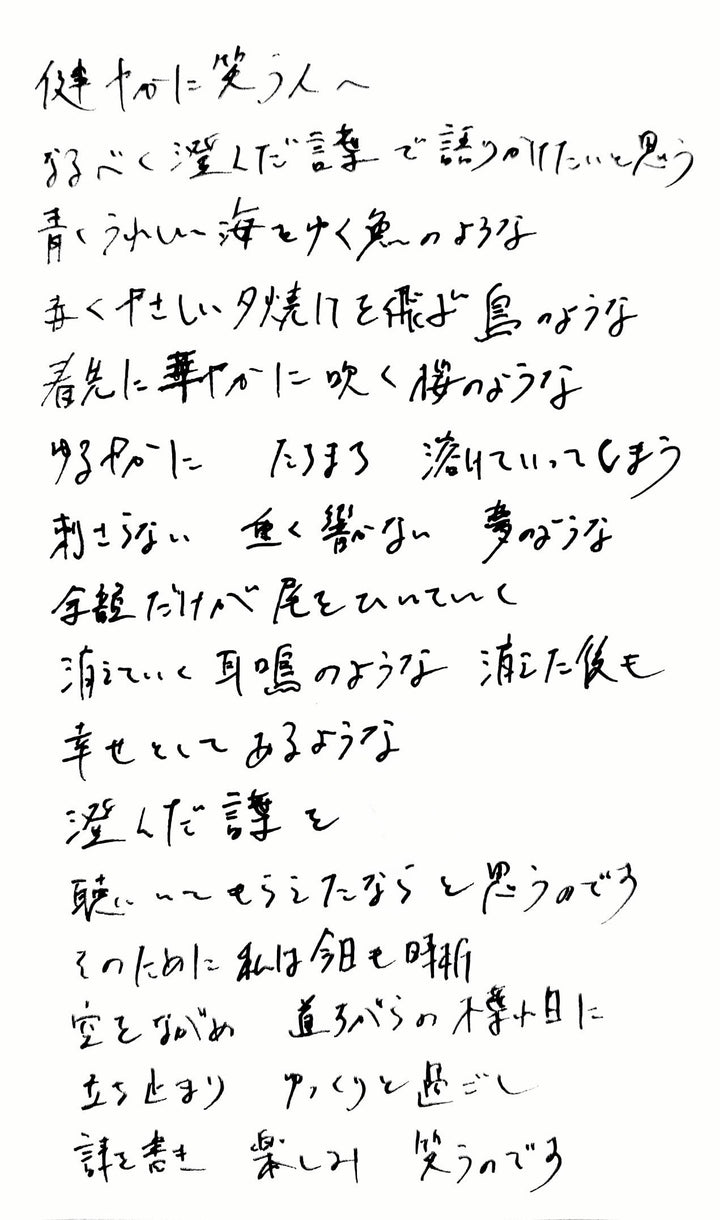 健やかに笑う人へ
なるべく澄んだ言葉で語りかけたいと思う
青くうれしい海をゆく魚のような
赤くやさしい夕焼けを飛ぶ鳥のような
春先に華やかに吹く桜のような
ゆるやかに たちまち 溶けていってしまう
刺さらない 重く響かない 夢のような
余韻だけが尾をひいていく
消えていく耳鳴のような 消えた後も
幸せとしてあるような
澄んだ言葉を
聴いてもらえたなら と思うのです
そのために私は今日も時折
空をながめ 道ちがらの木葉や目に
立ち止まり ゆっくりと過ごし
詩を書き 楽しみ 笑うのです